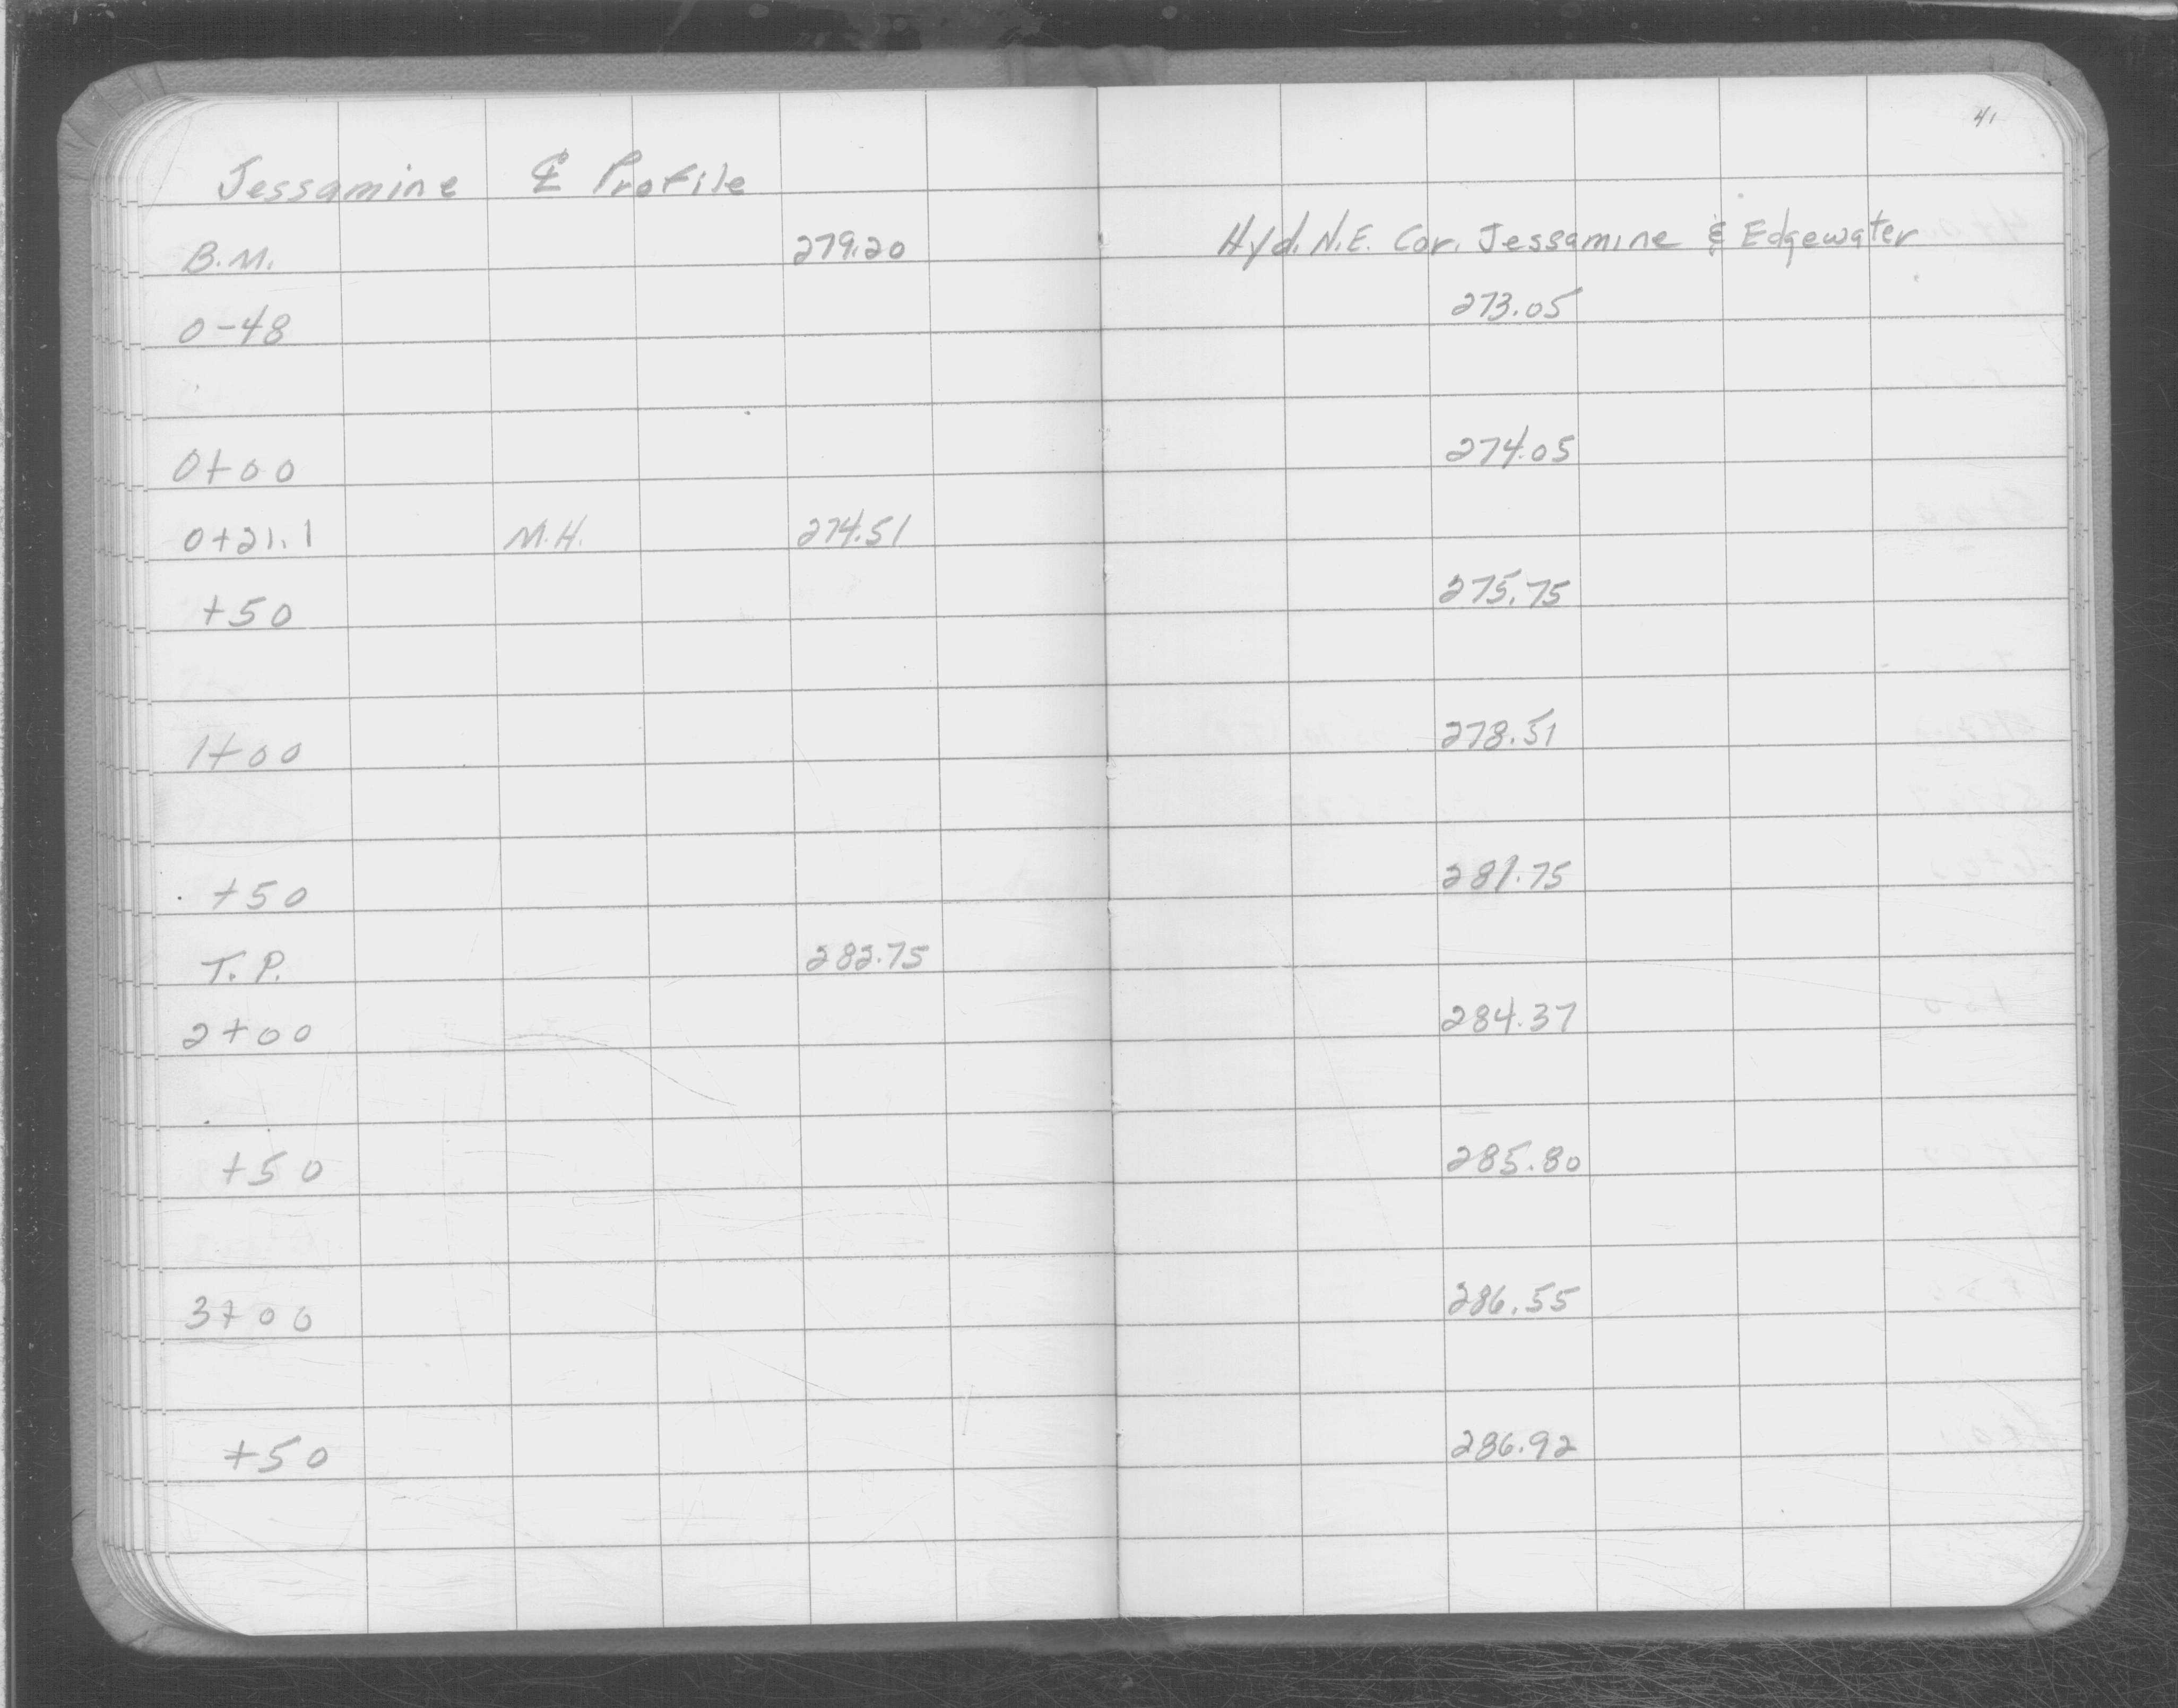 41
Jessamine ℄ Profile
B.M. 279.20 Hyd. N.E. Cor. Jessamine & Edgewater
0-48 273.05
0+00 274.05
0+21.1 M.H. 274.51
+50 275.75
1+00 278.51
+50 281.75
T.P. 282.75
2+00 284.37
+50 285.80
3+00 286.55
+50 286.92